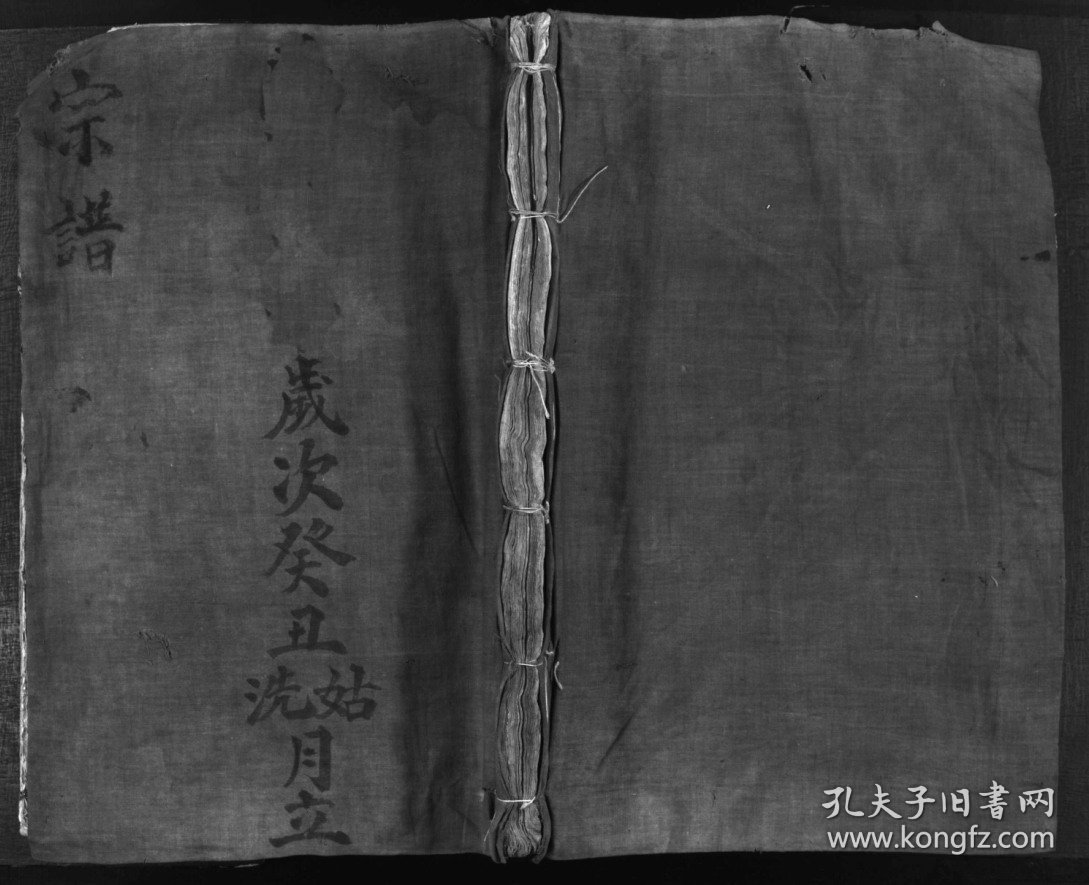 宗譜
歲次癸丑姑洗月立
孔夫子旧書网
www.kongfz.com